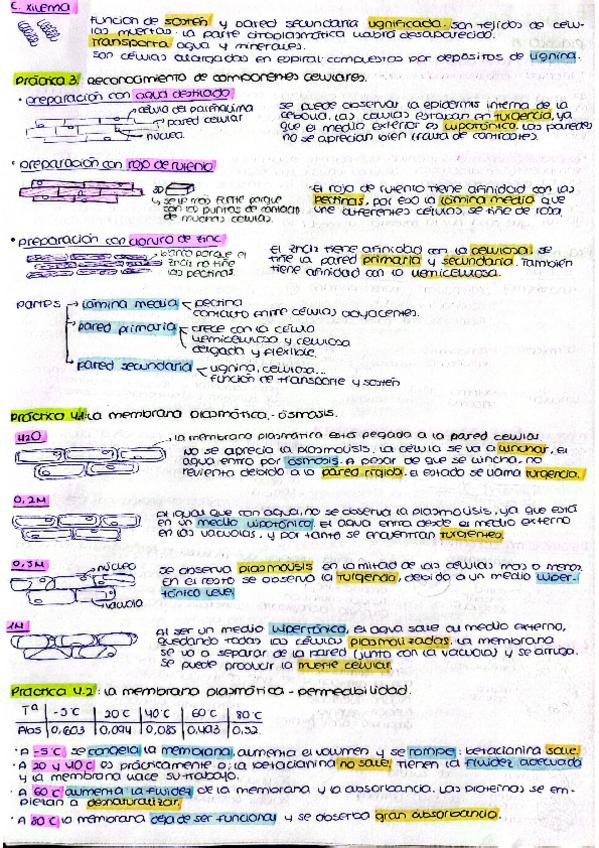 C. XILEMA
función de sostén y pared secundaria lignificada. Son tejidos de célu-
las muertas. La parte citoplasmática habrá desaparecido.
Transporta agua y minerales.
Son células alargadas en espiral compuestas por depósitos de lignina.
Práctica 3. Reconocimiento de componentes celulares.
· preparación con agua destilada
célula del parénquima
pared celular
núcleo
se puede observar la epidermis interna de la
cebolla. Las células estaban en turgencia, ya
que el medio exterior es hipotónico. Las paredes
no se aprecian bien (falta de contraste).
· preparación con rojo de rutenio
3D
se ve más fuerte porque
son los puntos de contacto
de muchas células.
El rojo de rutenio tiene afinidad con las
pectinas, por eso la lámina media que
une diferentes células, se tiñe de rosa.
· preparación con cloruro de zinc
blanco porque el
ZnCl2 no tiñe
las pectinas.
El ZnCl2 tiene afinidad con la celulosa, se
tiñe la pared primaria y secundaria. También
tiene afinidad con la hemicelulosa.
PARTES → lámina media
pectina
contacto entre células adyacentes.
pared primaria
crece con la célula
hemicelulosa y celulosa
delgada y flexible.
pared secundaria
lignina, celulosa...
función de transporte y sostén
Práctica 4.1: La membrana plasmática.- ósmosis.
H2O
la membrana plasmática está pegada a la pared celular.
No se aprecia la plasmólisis. La célula se va a hinchar, el
agua entra por ósmosis. A pesar de que se hincha, no
revienta debido a la pared rígida. El estado se llama turgencia.
0,2M
Al igual que con agua, no se observa la plasmólisis, ya que está
en un medio hipotónico. El agua entra desde el medio externo
en las vacuolas, y por tanto se encuentran turgentes.
0,3M
núcleo
vacuola
Se observa plasmólisis en la mitad de las células más o menos.
En el resto se observa la turgencia, debido a un medio hiper-
tónico leve.
1M
Al ser un medio hipertónico, el agua sale al medio externo,
quedando todas las células plasmolizadas. La membrana
se va a separar de la pared (junto con la vacuola) y se arruga.
Se puede producir la muerte celular.
Práctica 4.2: La membrana plasmática - permeabilidad.
Tª | -5ºC | 20ºC | 40ºC | 60ºC | 80ºC
Abs | 0,603 | 0,094 | 0,085 | 0,403 | 0,52
· A -5ºC se congela la membrana, aumenta el volumen y se rompe: betacianina sale.
· A 20 y 40ºC es prácticamente 0, la betacianina no sale. Tienen la fluidez adecuada
y la membrana hace su trabajo.
· A 60ºC aumenta la fluidez de la membrana y la absorbancia. Las proteínas se em-
piezan a desnaturalizar.
· A 80ºC la membrana deja de ser funcional y se observa gran absorbancia.